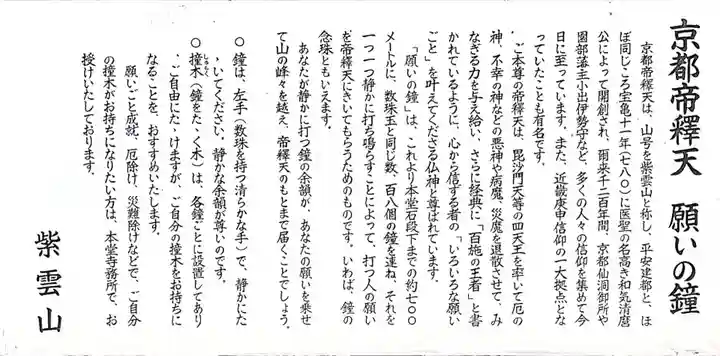 京都帝釋天　願いの鐘
京都帝釋天は、山号を紫雲山と称し、平安建都と、ほ
ぼ同じころ宝亀十一年(七八〇)に医聖の名高き和気清麿
公によって開創され、爾来千二百年間、京都仙洞御所や
園部藩主小出伊勢守など、多くの人々の信仰を集めて今
日に至っています。また、近畿庚申信仰の一大拠点とな
っていたことも有名です。
ご本尊の帝釋天は、毘沙門天等の四天王を率いて厄の
神、不幸の神などの悪神や病魔、災魔を退散させて、み
なぎる力を与え給い、さらに経典に「百施の王者」と書
かれているように、心から信ずる者の「いろいろな願い
ごと」を叶えてくださる仏神と尊ばれています。
「願いの鐘」は、これより本堂石段下までの約七〇〇
メートルに、数珠玉と同じ数、百八個の鐘を連ね、それを
一つ一つ静かに打ち鳴らすことによって、打つ人の願い
を帝釋天にきいてもらうためのものです。いわば、鐘の
念珠ともいえます。
あなたが静かに打つ鐘の余韻が、あなたの願いを乗せ
て山の峰々を越え、帝釋天のもとまで届くことでしょう。
○鐘は、左手(数珠を持つ清らかな手)で、静かにた
ゝいてください。静かな余韻が尊いのです。
○撞木(鐘をたゝく木)は、各鐘ごとに設置してあり
、ご自由にたゝけますが、ご自分の撞木をお持ちに
なることを、おすすめいたします。
願いごと成就、厄除け、災難除けなどで、ご自分
の撞木がお持ちになりたい方は、本堂寺務所で、お
授けいたしております。
紫雲山